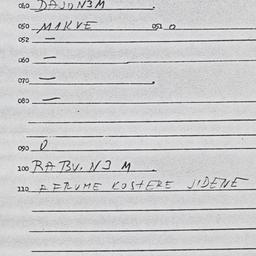 040 DAJON3M
050 MAKVE 051 0
052 —
060 —
070 —
080 —
090 0
100 RATBV. N3 M
110 KOSTERE JIDENE